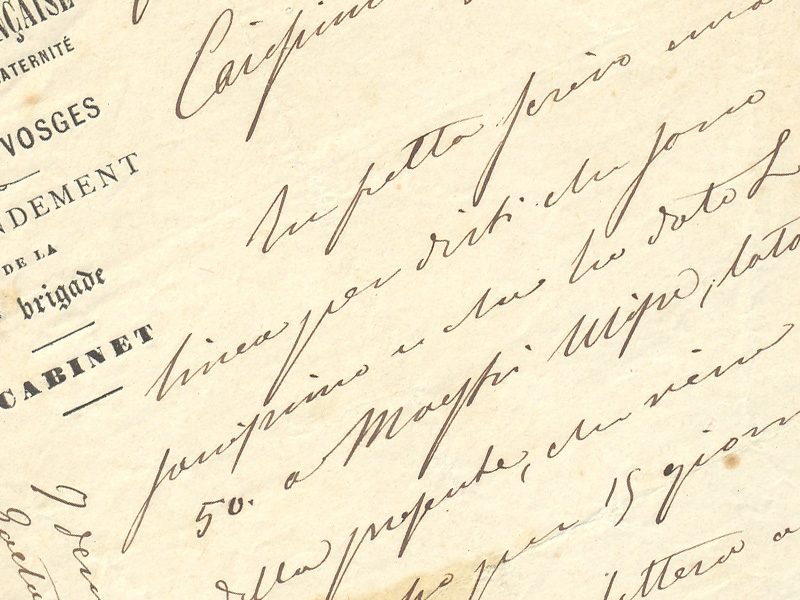 NÇAISE
ATERNITÉ
VOSGES
NDEMENT
DE LA
brigade
CABINET
Carissimo
In fretta scrivo una
linea per dirti che sono
sanissimo e che ho dato L
50. a Maestri Ulisse, lato
della presente, che viene
per 15 giorn
lettera a